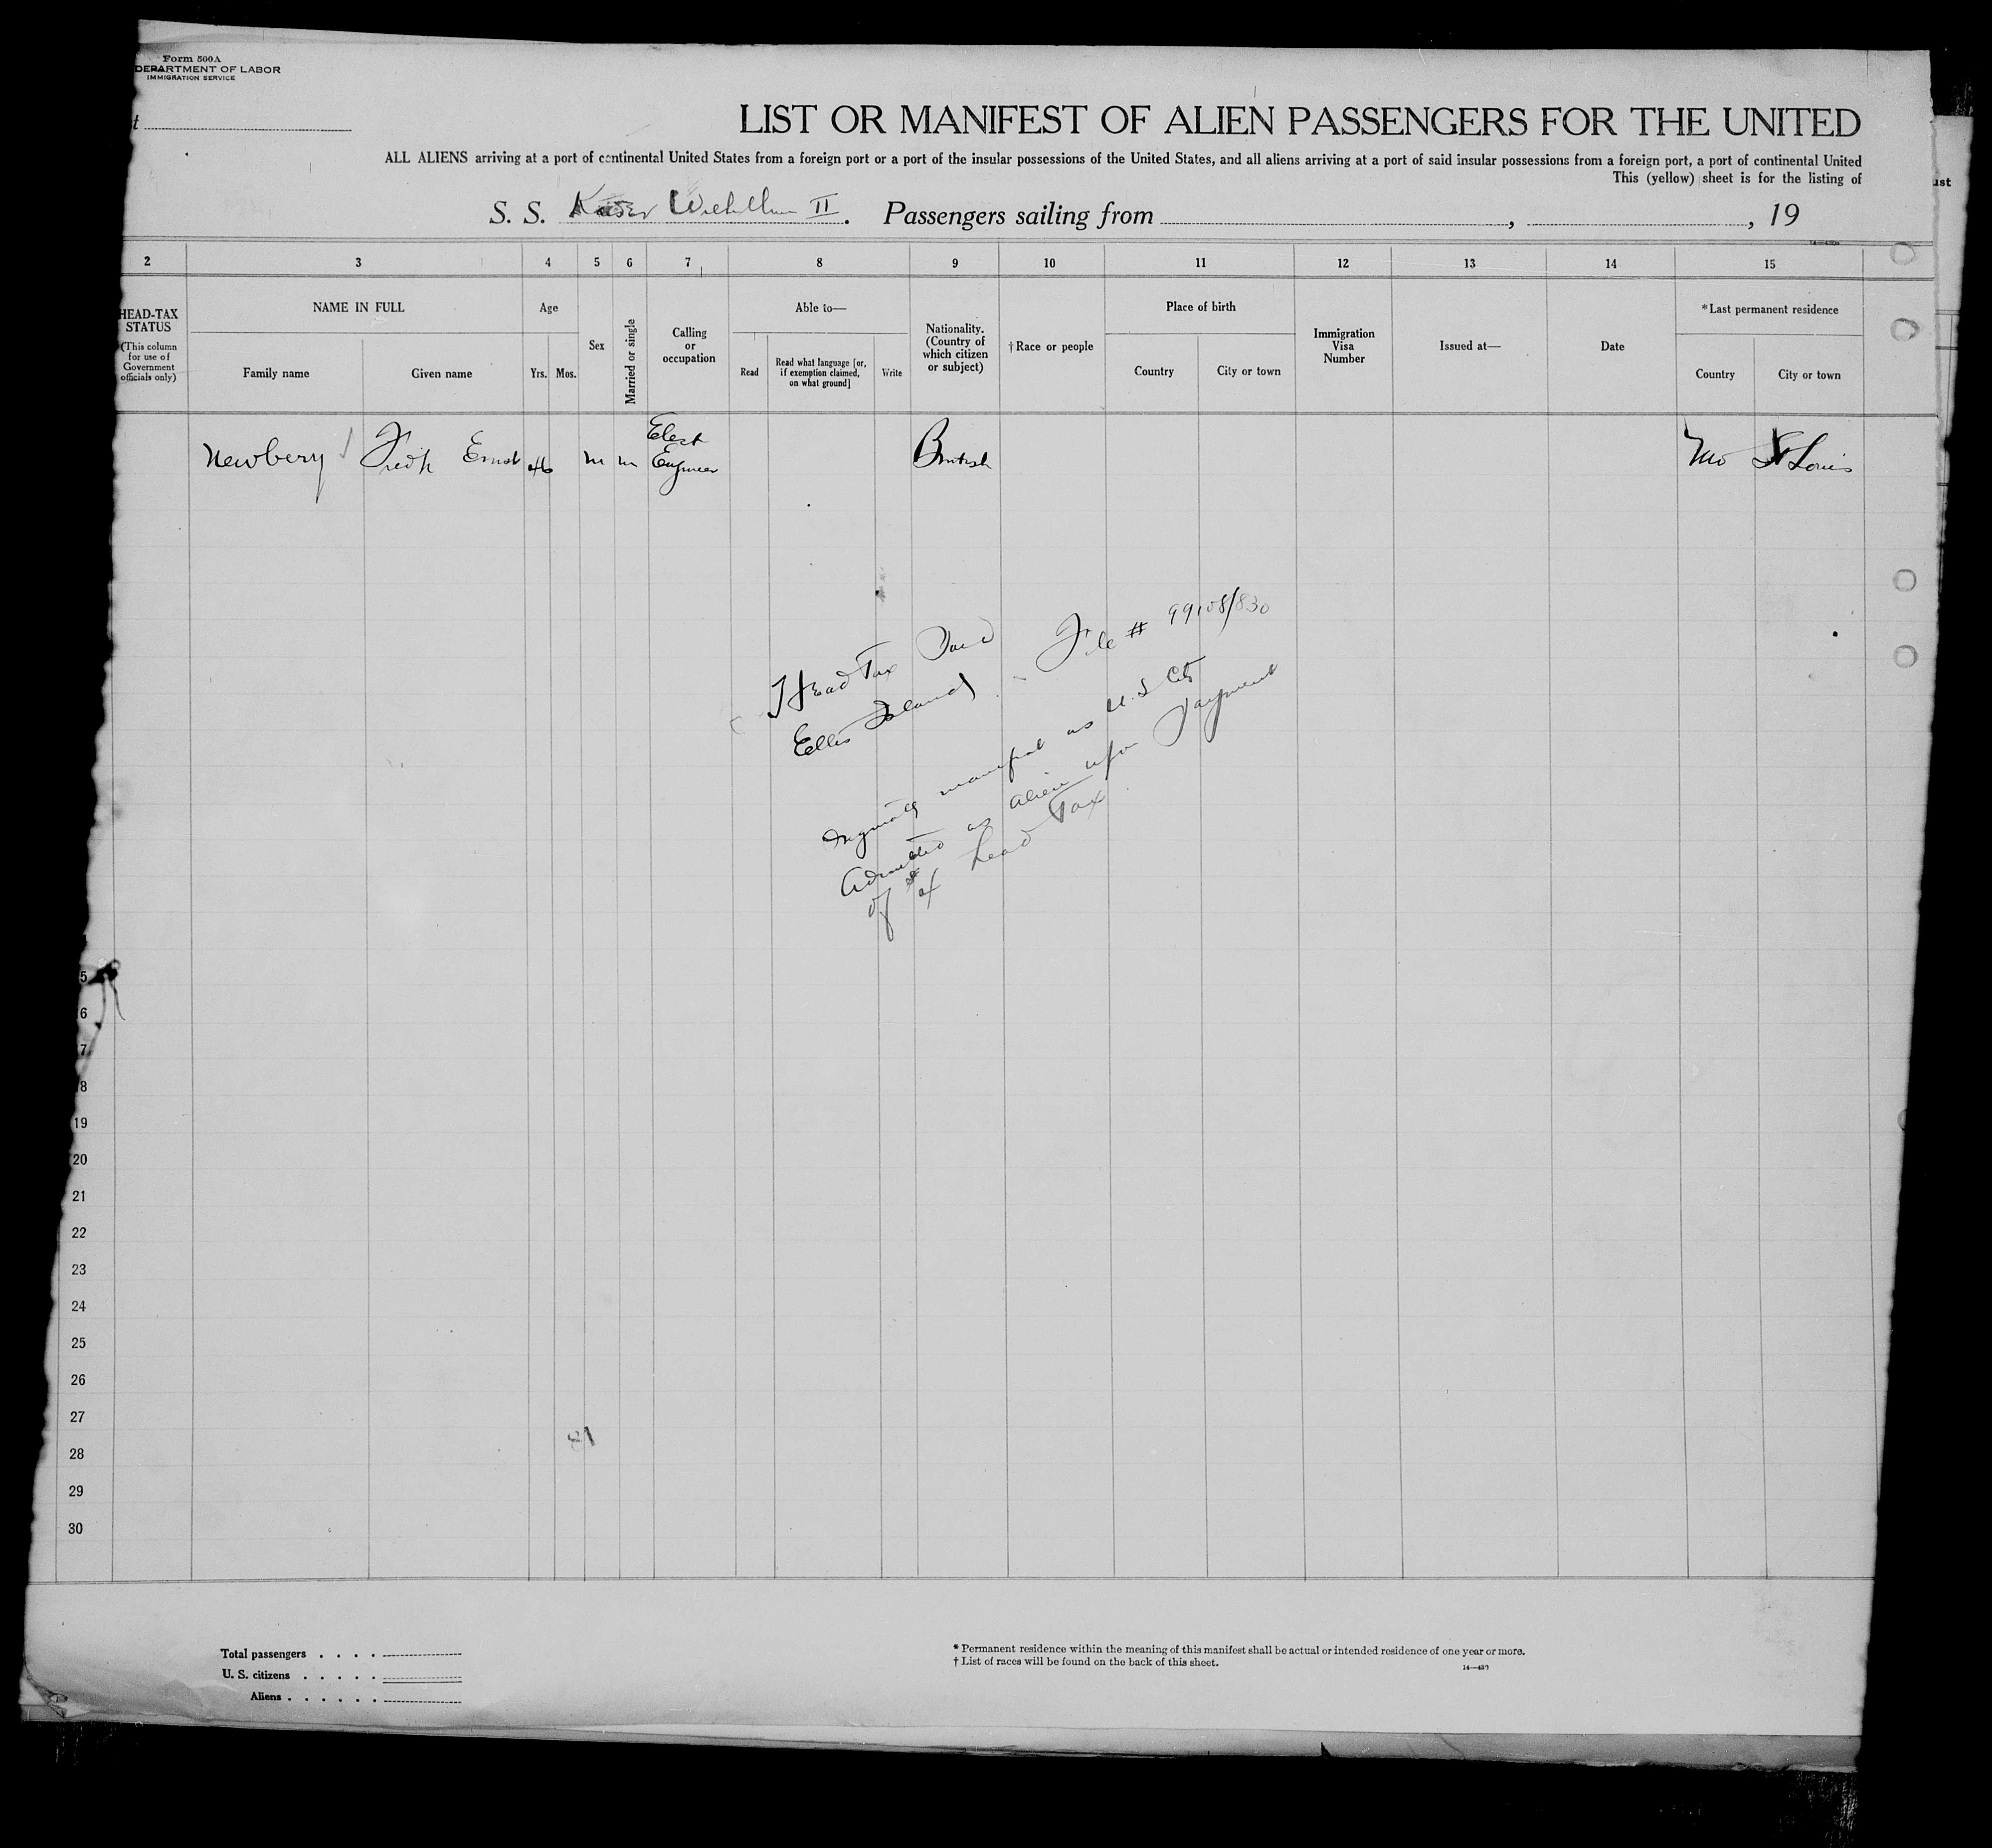 Form 500A
DEPARTMENT OF LABOR
IMMIGRATION SERVICE
LIST OR MANIFEST OF ALIEN PASSENGERS FOR THE UNITED
ALL ALIENS arriving at a port of continental United States from a foreign port or a port of the insular possessions of the United States, and all aliens arriving at a port of said insular possessions from a foreign port, a port of continental United
This (yellow) sheet is for the listing of
ust
S. S. Kaiser Wilhelm II. Passengers sailing from , , 19
2 3 4 5 6 7 8 9 10 11 12 13 14 15
HEAD-TAX STATUS
(This column for use of Government officials only)
NAME IN FULL
Family name Given name
Age
Yrs. Mos.
Sex
Married or single
Calling or occupation
Able to—
Read
Read what language [or, if exemption claimed, on what ground]
Write
Nationality. (Country of which citizen or subject)
† Race or people
Place of birth
Country City or town
Immigration Visa Number
Issued at—
Date
*Last permanent residence
Country City or town
Newbery Fredk Ernest 46 m m Elect Engineer British Mo St Louis
Head Tax Paid
Ellis Island - File # 99108/830
manifest as U.S. Cit
Admitted as alien upon payment
of head Tax
5
6
7
8
19
20
21
22
23
24
25
26
27
28
29
30
Total passengers . . . .
U. S. citizens . . . . .
Aliens . . . . . .
* Permanent residence within the meaning of this manifest shall be actual or intended residence of one year or more.
† List of races will be found on the back of this sheet.
14—437